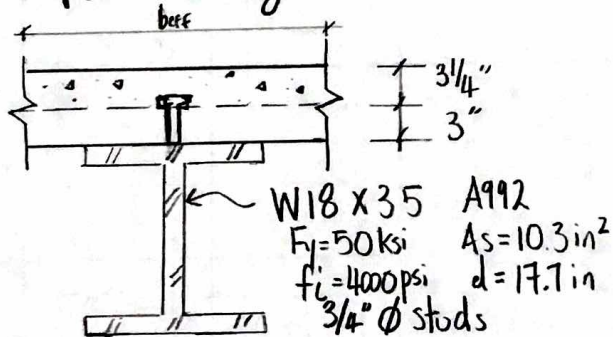 beff
3 1/4"
3"
W18 X 35 A992
Fy=50 ksi As=10.3 in²
f'c=4000 psi d=17.7 in
3/4" Ø studs